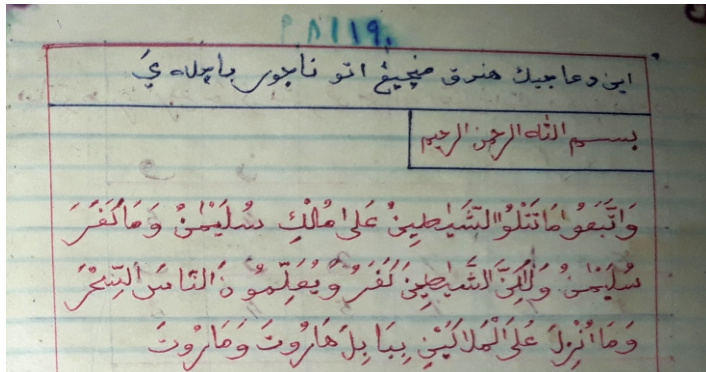 P 8119.
اين دعا جيک هندق منچيڠ اتو ناجور باچله ي
بسم الله الرحمن الرحيم
وَاتَّبَعُوا مَا تَتْلُوا الشَّيَٰطِينُ عَلَىٰ مُلْكِ سُلَيْمَٰنَ وَمَا كَفَرَ
سُلَيْمَٰنُ وَلَٰكِنَّ الشَّيَٰطِينَ كَفَرُوا يُعَلِّمُونَ النَّاسَ السِّحْرَ
وَمَا أُنْزِلَ عَلَى الْمَلَكَيْنِ بِبَابِلَ هَارُوتَ وَمَارُوتَ